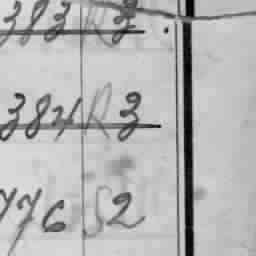 383 R 3.
384 R 3
776 S 2